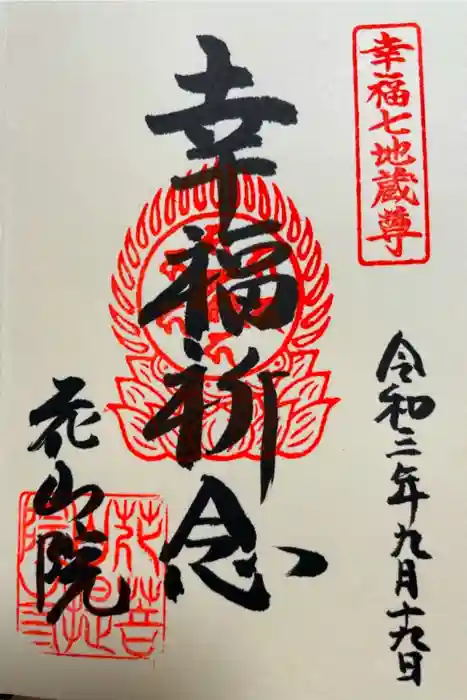 幸福七地蔵尊
令和三年九月十九日
幸福祈念
花山院